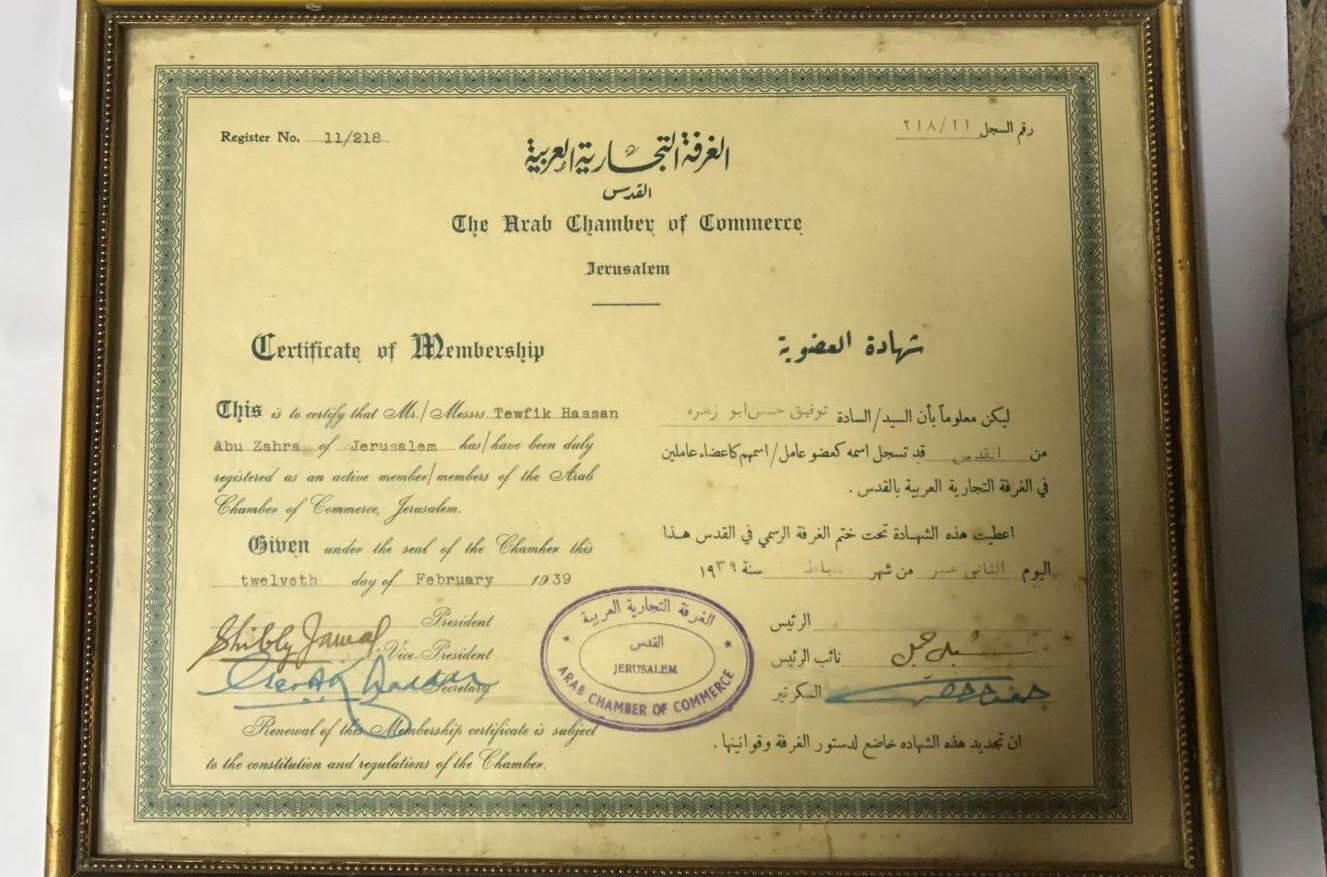 Register No. 11/218
رقم السجل ٢١٨/١١
الغرفة التجارية العربية
القدس
The Arab Chamber of Commerce
Jerusalem
Certificate of Membership
This is to certify that Mr./Messrs. Tewfik Hassan
Abu Zahra of Jerusalem has/have been duly
registered as an active member/members of the Arab
Chamber of Commerce, Jerusalem.
Given under the seal of the Chamber this
twelveth day of February 1939
President
Shibly Jamal Vice-President
Secretary
Renewal of the Membership certificate is subject
to the constitution and regulations of the Chamber.
شهادة العضوية
ليكن معلوماً بأن السيد/السادة توفيق حسن ابو زهره
من القدس قد تسجل اسمه كعضو عامل/اسمهم كاعضاء عاملين
في الغرفة التجارية العربية بالقدس.
اعطيت هذه الشهادة تحت ختم الغرفة الرسمي في القدس هذا
اليوم الثاني عشر من شهر شباط سنة ١٩٣٩
الرئيس
نائب الرئيس
السكرتير
ان تجديد هذه الشهاده خاضع لدستور الغرفة وقوانينها.
الغرفة التجارية العربية
القدس
JERUSALEM
ARAB CHAMBER OF COMMERCE